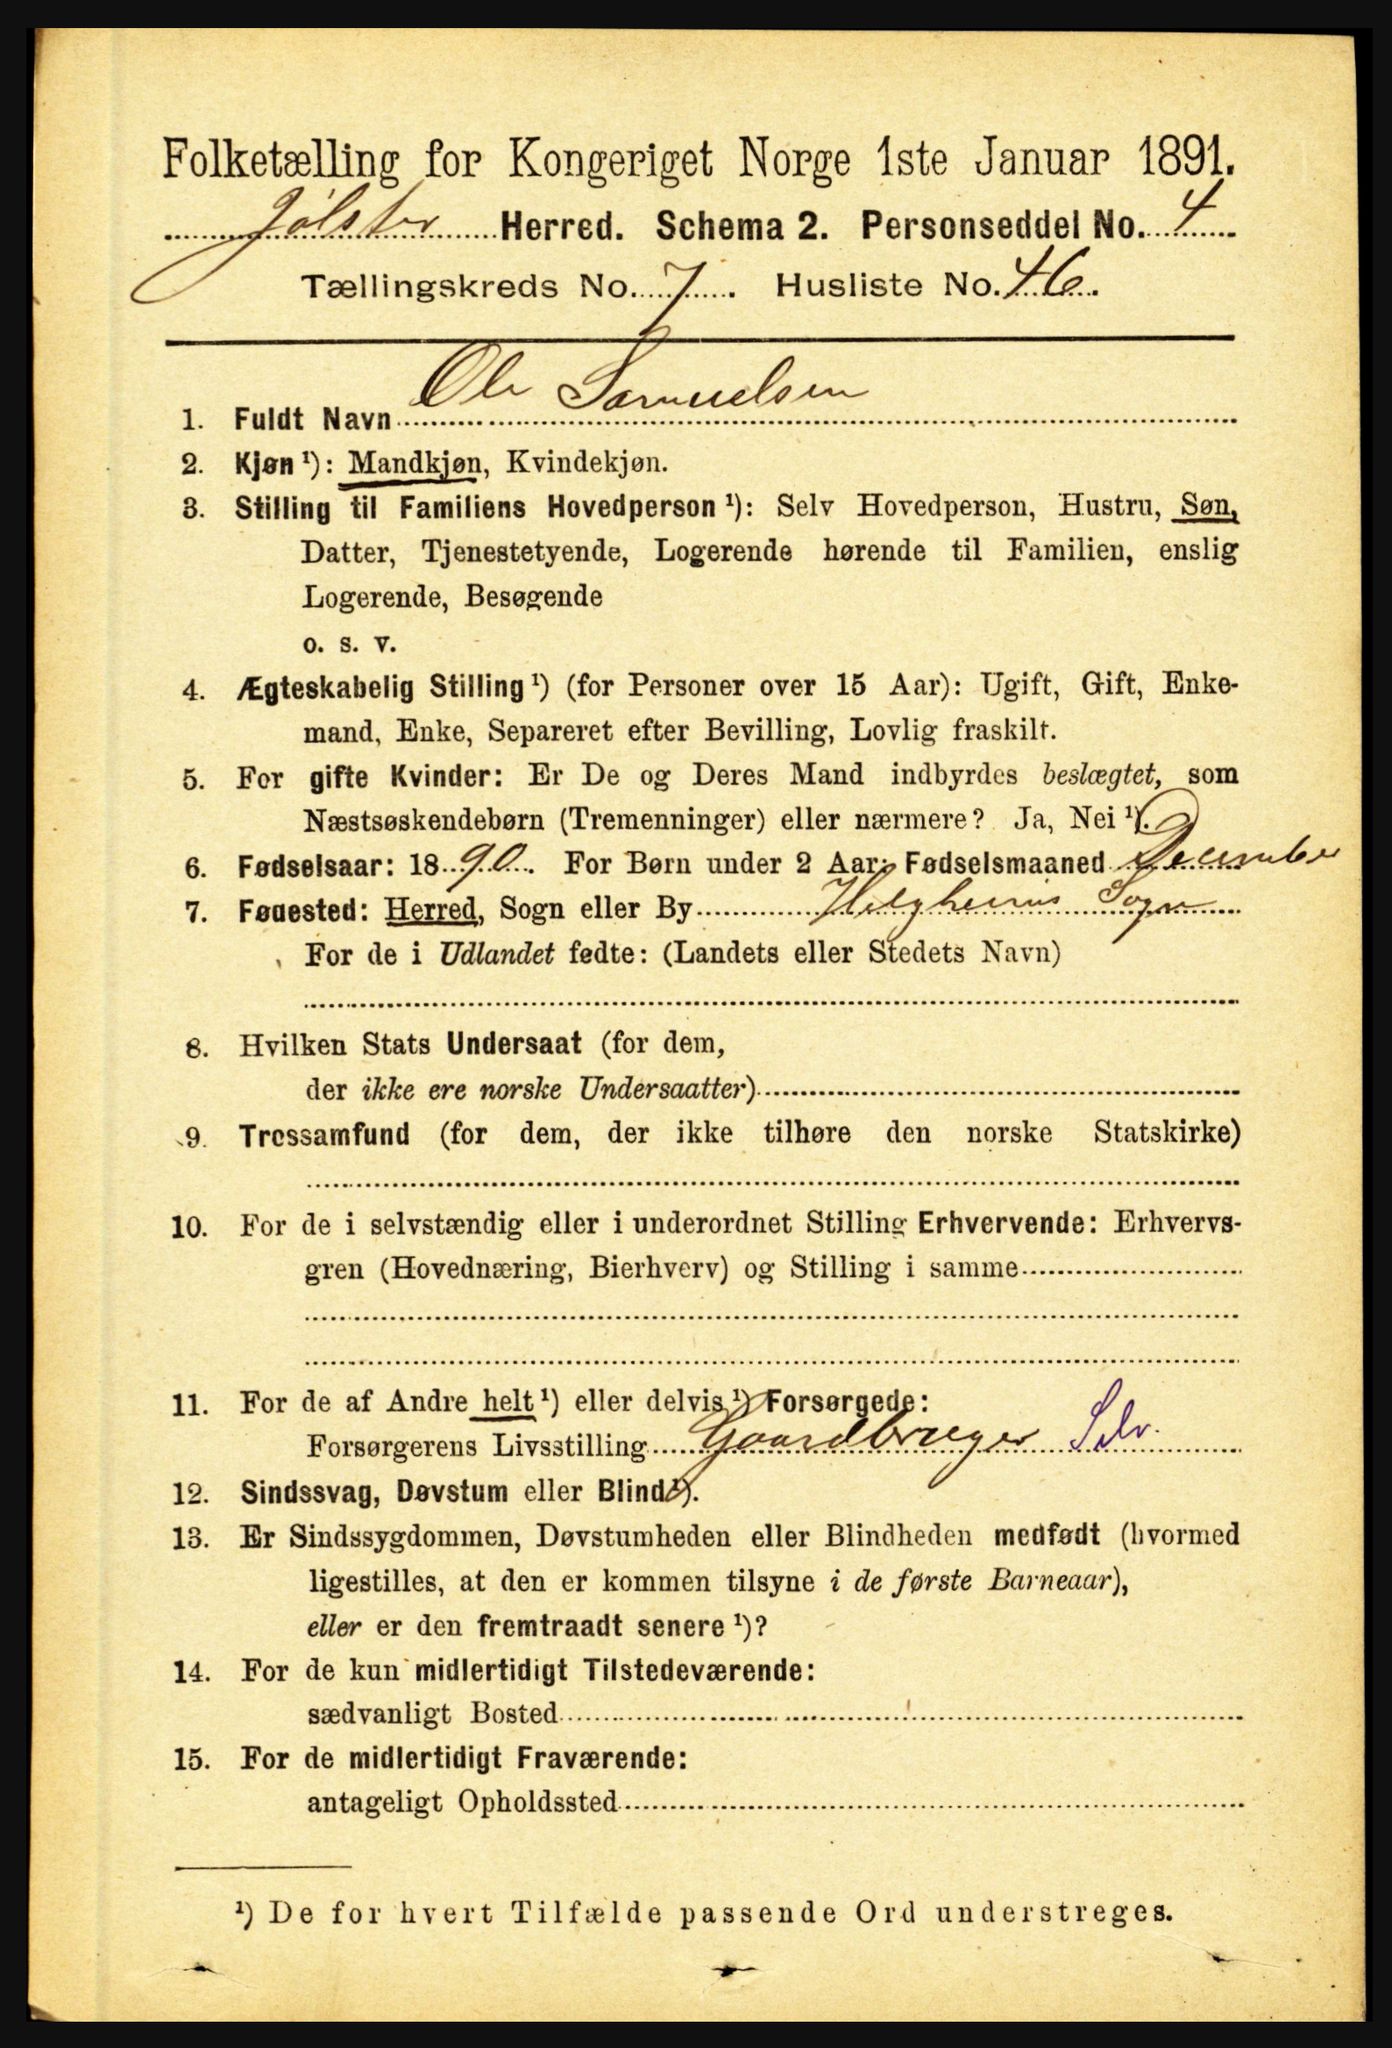 Folketælling for Kongeriget Norge 1ste Januar 1891.
Jølster Herred. Schema 2. Personseddel No. 4
Tællingskreds No. 7. Husliste No. 46.
1. Fuldt Navn Ole Samuelsen
2. Kjøn ¹): Mandkjøn, Kvindekjøn.
3. Stilling til Familiens Hovedperson ¹): Selv Hovedperson, Hustru, Søn,
Datter, Tjenestetyende, Logerende hørende til Familien, enslig
Logerende, Besøgende
o. s. v.
4. Ægteskabelig Stilling ¹) (for Personer over 15 Aar): Ugift, Gift, Enke-
mand, Enke, Separeret efter Bevilling, Lovlig fraskilt.
5. For gifte Kvinder: Er De og Deres Mand indbyrdes beslægtet, som
Næstsøskendebørn (Tremenninger) eller nærmere? Ja, Nei ¹).
6. Fødselsaar: 1890. For Børn under 2 Aar: Fødselsmaaned December
7. Fødested: Herred, Sogn eller By Helgheims Sogn
For de i Udlandet fødte: (Landets eller Stedets Navn)
8. Hvilken Stats Undersaat (for dem,
der ikke ere norske Undersaatter)
9. Trossamfund (for dem, der ikke tilhøre den norske Statskirke)
10. For de i selvstændig eller i underordnet Stilling Erhvervende: Erhvervs-
gren (Hovednæring, Bierhverv) og Stilling i samme
11. For de af Andre helt ¹) eller delvis ¹) Forsørgede:
Forsørgerens Livsstilling Gaardbruger Selv.
12. Sindssvag, Døvstum eller Blind ¹).
13. Er Sindssygdommen, Døvstumheden eller Blindheden medfødt (hvormed
ligestilles, at den er kommen tilsyne i de første Barneaar),
eller er den fremtraadt senere ¹)?
14. For de kun midlertidigt Tilstedeværende:
sædvanligt Bosted
15. For de midlertidigt Fraværende:
antageligt Opholdssted
¹) De for hvert Tilfælde passende Ord understreges.